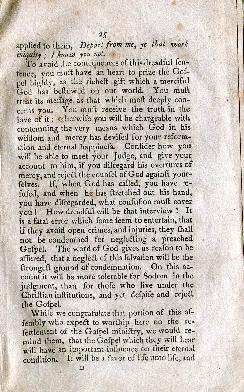 25
applied to them, Depart from me, ye that work
iniquity; I know you not.
To avoid the consequences of this dreadful sen-
tence, you must have an heart to prize the Gos-
pel highly, as the richest gift which a merciful
God has bestowed on our world. You must
treat its message as that which most deeply con-
cerns you. You must receive the truth in the
love of it: otherwise you will be chargeable with
contemning the very means which God in his
wisdom and mercy has devised for your reforma-
tion and eternal happiness. Consider how you
will be able to meet your Judge, and give your
account to him, if you disregard his overtures of
mercy, and reject the counsel of God against your-
selves. If, when God has called, you have re-
fused, and when he has stretched out his hand,
you have disregarded, what confusion must cover
you! How dreadful will be that interview! It
is a fatal error which some seem to entertain, that
if they avoid open crimes, and injuries, they shall
not be condemned for neglecting a preached
Gospel. The word of God gives us reason to be
assured, that a neglect of this salvation will be the
strongest ground of condemnation. On this ac-
count it will be more tolerable for Sodom in the
judgment, than for those who live under the
Christian institutions, and yet despise and reject
the Gospel.
While we congratulate that portion of this as-
sembly who expect to worship here on the re-
settlement of the Gospel ministry, we would re-
mind them, that the Gospel which they will hear
will have an important influence on their eternal
condition. It will be a savor of life unto life, and
D